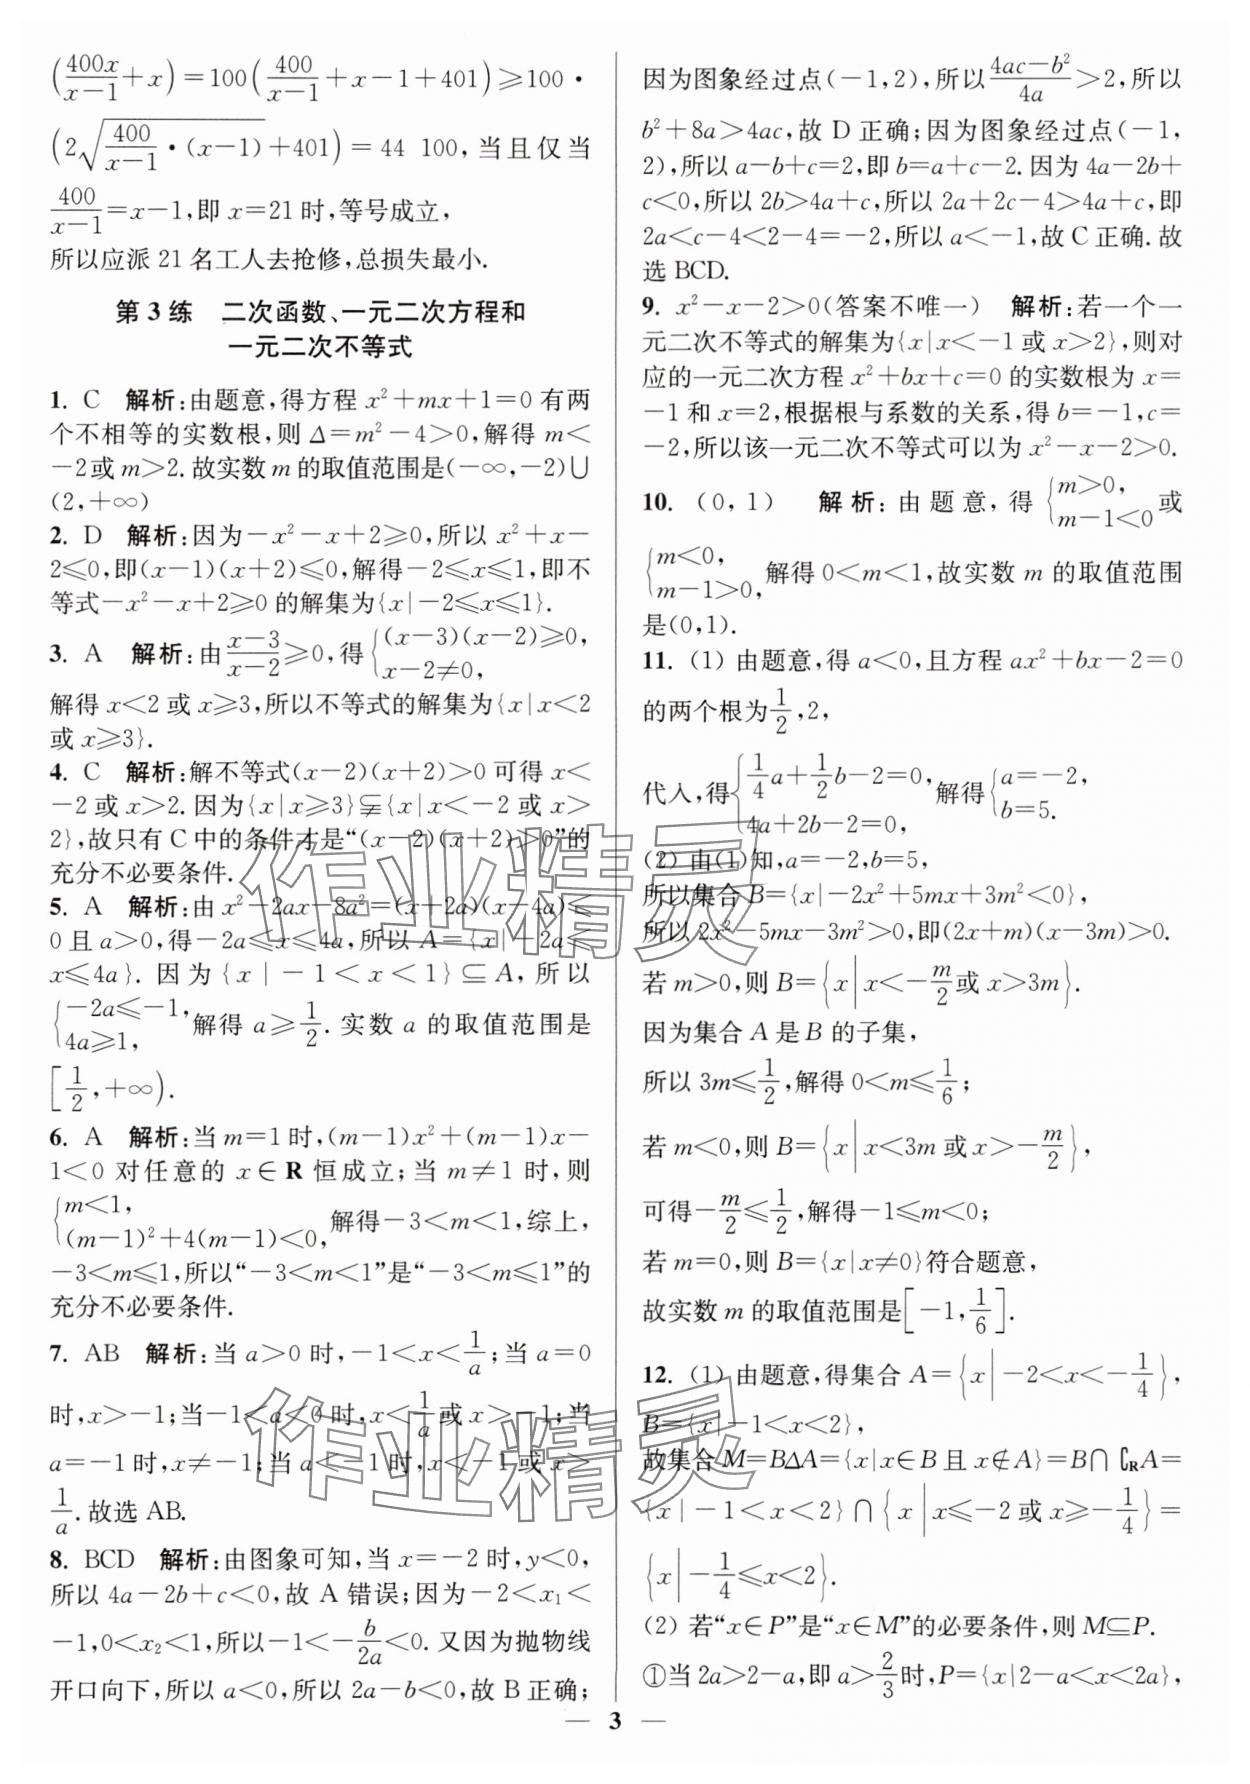 (400x/(x−1)+x)=100(400/(x−1)+x−1+401)⩾100·
(2√(400/(x−1)·(x−1))+401)=44 100,当且仅当
400/(x−1)=x−1,即 x=21 时,等号成立,
所以应派 21 名工人去抢修,总损失最小.
第 3 练 二次函数、一元二次方程和
一元二次不等式
1. C 解析:由题意,得方程 x²+mx+1=0 有两
个不相等的实数根,则 Δ=m²−4>0,解得 m<
−2或 m>2.故实数 m 的取值范围是(−∞,−2)∪
(2,+∞)
2. D 解析:因为−x²−x+2⩾0,所以 x²+x−
2⩽0,即(x−1)(x+2)⩽0,解得−2⩽x⩽1,即不
等式−x²−x+2⩾0 的解集为{x|−2⩽x⩽1}.
3. A 解析:由(x−3)/(x−2)⩾0,得{(x−3)(x−2)⩾0, x−2≠0,
解得 x<2 或 x⩾3,所以不等式的解集为{x|x<2
或 x⩾3}.
4. C 解析:解不等式(x−2)(x+2)>0 可得 x<
−2 或 x>2.因为{x|x⩾3}⫋{x|x<−2 或 x>
2},故只有 C 中的条件才是“(x−2)(x+2)>0”的
充分不必要条件.
5. A 解析:由 x²−2ax−8a²=(x+2a)(x−4a)⩽
0 且 a>0,得−2a⩽x⩽4a,所以 A={x|−2a⩽
x⩽4a}.因为{x|−1<x<1}⊆A,所以
{−2a⩽−1, 4a⩾1, 解得 a⩾1/2.实数 a 的取值范围是
[1/2,+∞).
6. A 解析:当 m=1 时,(m−1)x²+(m−1)x−
1<0 对任意的 x∈R 恒成立;当 m≠1 时,则
{m<1, (m−1)²+4(m−1)<0, 解得−3<m<1,综上,
−3<m⩽1,所以“−3<m<1”是“−3<m⩽1”的
充分不必要条件.
7. AB 解析:当 a>0 时,−1<x<1/a;当 a=0
时,x>−1;当−1<a<0 时,x<1/a或 x>−1;当
a=−1 时,x≠−1;当 a<−1 时,x<−1 或 x>
1/a.故选 AB.
8. BCD 解析:由图象可知,当 x=−2 时,y<0,
所以 4a−2b+c<0,故 A 错误;因为−2<x₁<
−1,0<x₂<1,所以−1<−b/2a<0.又因为抛物线
开口向下,所以 a<0,所以 2a−b<0,故 B 正确;
因为图象经过点(−1,2),所以(4ac−b²)/4a>2,所以
b²+8a>4ac,故 D 正确;因为图象经过点(−1,
2),所以 a−b+c=2,即 b=a+c−2.因为 4a−2b+
c<0,所以 2b>4a+c,所以 2a+2c−4>4a+c,即
2a<c−4<2−4=−2,所以 a<−1,故 C 正确.故
选 BCD.
9. x²−x−2>0(答案不唯一) 解析:若一个一
元二次不等式的解集为{x|x<−1 或 x>2},则对
应的一元二次方程 x²+bx+c=0 的实数根为 x=
−1 和 x=2,根据根与系数的关系,得 b=−1,c=
−2,所以该一元二次不等式可以为 x²−x−2>0.
10. (0,1) 解析:由题意,得{m>0, m−1<0 或
{m<0, m−1>0, 解得 0<m<1,故实数 m 的取值范围
是(0,1).
11. (1) 由题意,得 a<0,且方程 ax²+bx−2=0
的两个根为1/2,2,
代入,得{1/4a+1/2b−2=0, 4a+2b−2=0, 解得{a=−2, b=5.
(2) 由(1)知,a=−2,b=5,
所以集合 B={x|−2x²+5mx+3m²<0},
所以 2x²−5mx−3m²>0,即(2x+m)(x−3m)>0.
若 m>0,则 B={x|x<−m/2或 x>3m}.
因为集合 A 是 B 的子集,
所以 3m⩽1/2,解得 0<m⩽1/6;
若 m<0,则 B={x|x<3m 或 x>−m/2},
可得−m/2⩽1/2,解得−1⩽m<0;
若 m=0,则 B={x|x≠0}符合题意,
故实数 m 的取值范围是[−1,1/6].
12. (1) 由题意,得集合 A={x|−2<x<−1/4},
B={x|−1<x<2},
故集合 M=BΔA={x|x∈B 且 x∉A}=B∩∁RA=
{x|−1<x<2}∩{x|x⩽−2 或 x⩾−1/4}=
{x|−1/4⩽x<2}.
(2) 若“x∈P”是“x∈M”的必要条件,则 M⊆P.
①当 2a>2−a,即 a>2/3时,P={x|2−a<x<2a},
— 3 —
作业精灵
作业精灵